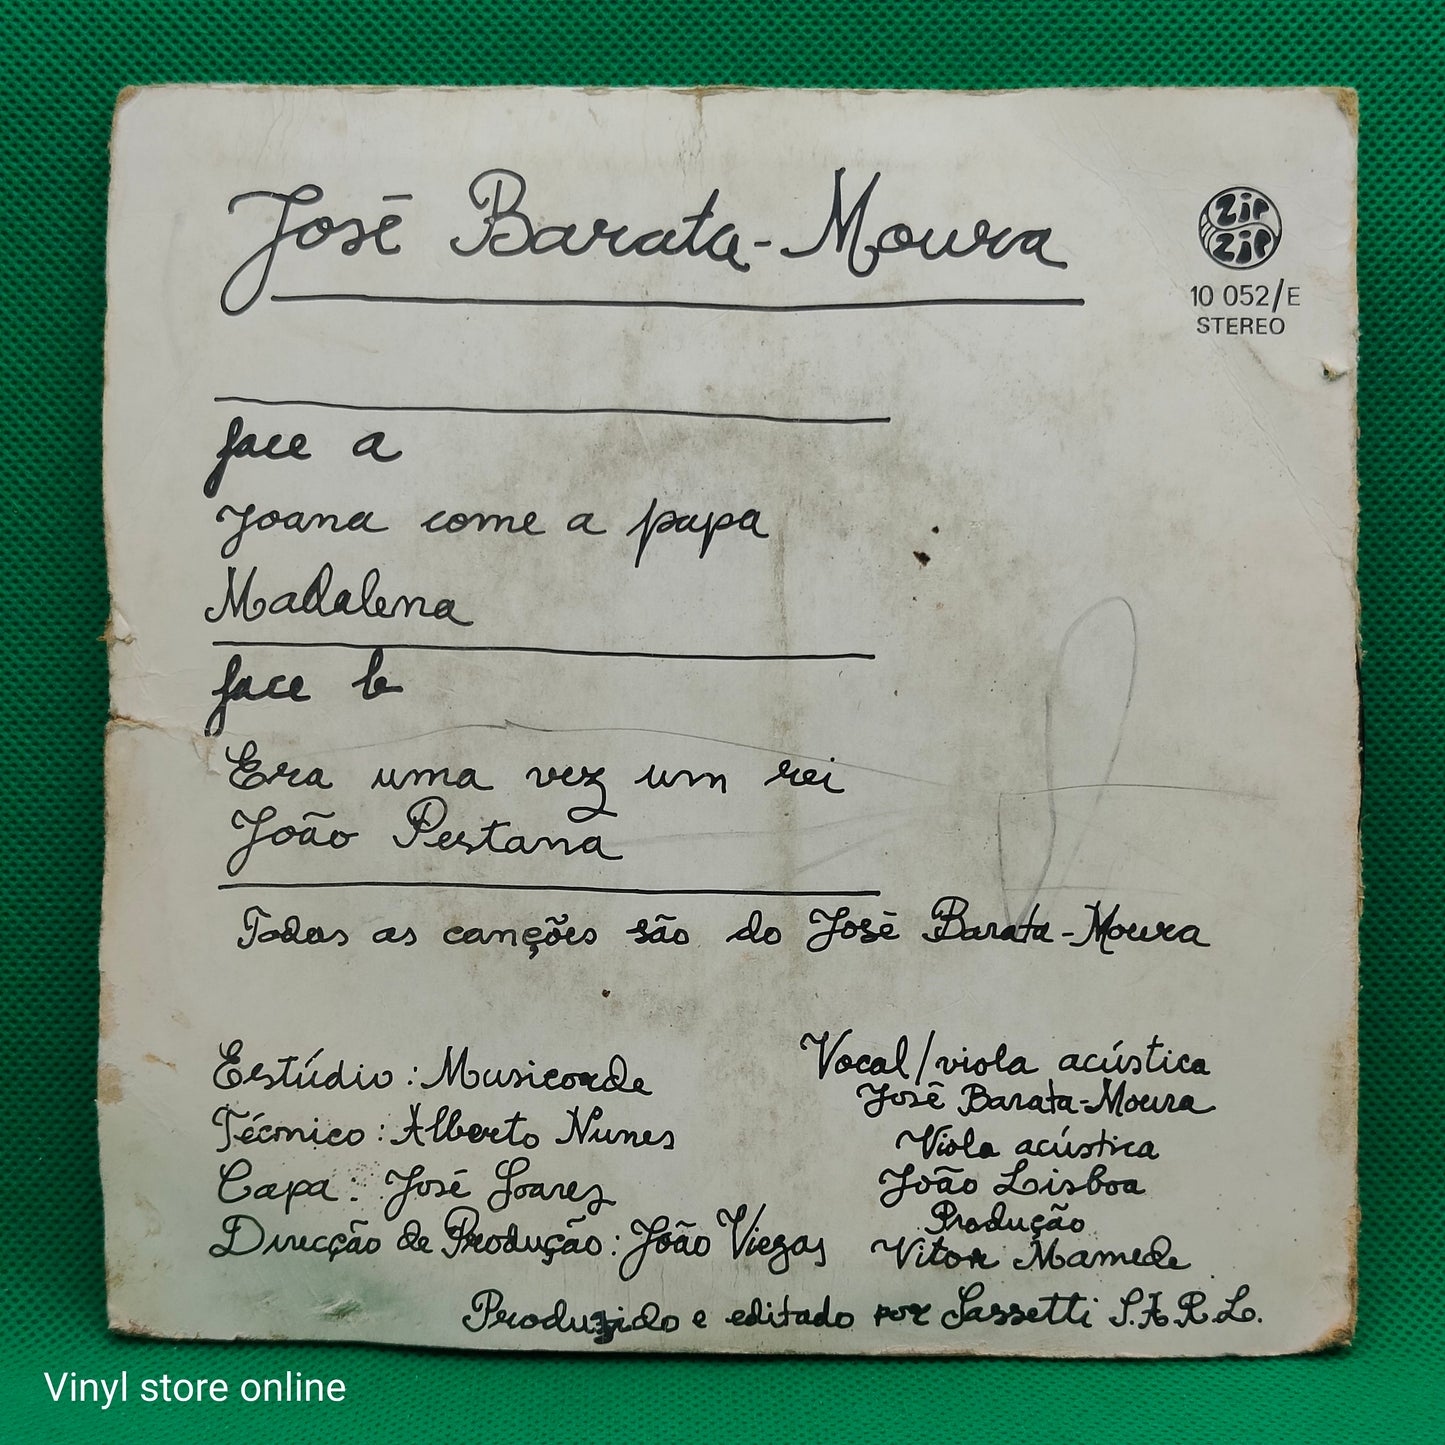 José Barata-Moura
Zip
Zip
10 052/E
STEREO
face a
Joana come a papa
Madalena
face b
Era uma vez um rei
João Pestana
Todas as canções são do José Barata-Moura
Estúdio: Musicorde
Técnico: Alberto Nunes
Capa: José Soares
Direcção de Produção: João Viegas
Vocal/viola acústica
José Barata-Moura
Viola acústica
João Lisboa
Produção
Vitor Mamede
Produzido e editado por Sassetti S.A.R.L.
Vinyl store online